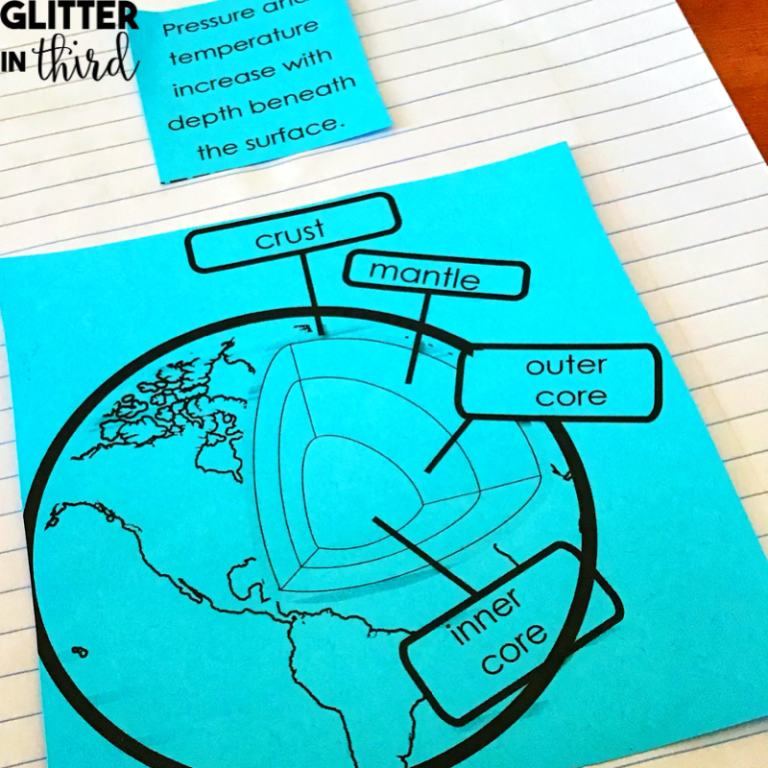 GLITTER
IN third
Pressure and
temperature
increase with
depth beneath
the surface.
crust
mantle
outer
core
inner
core